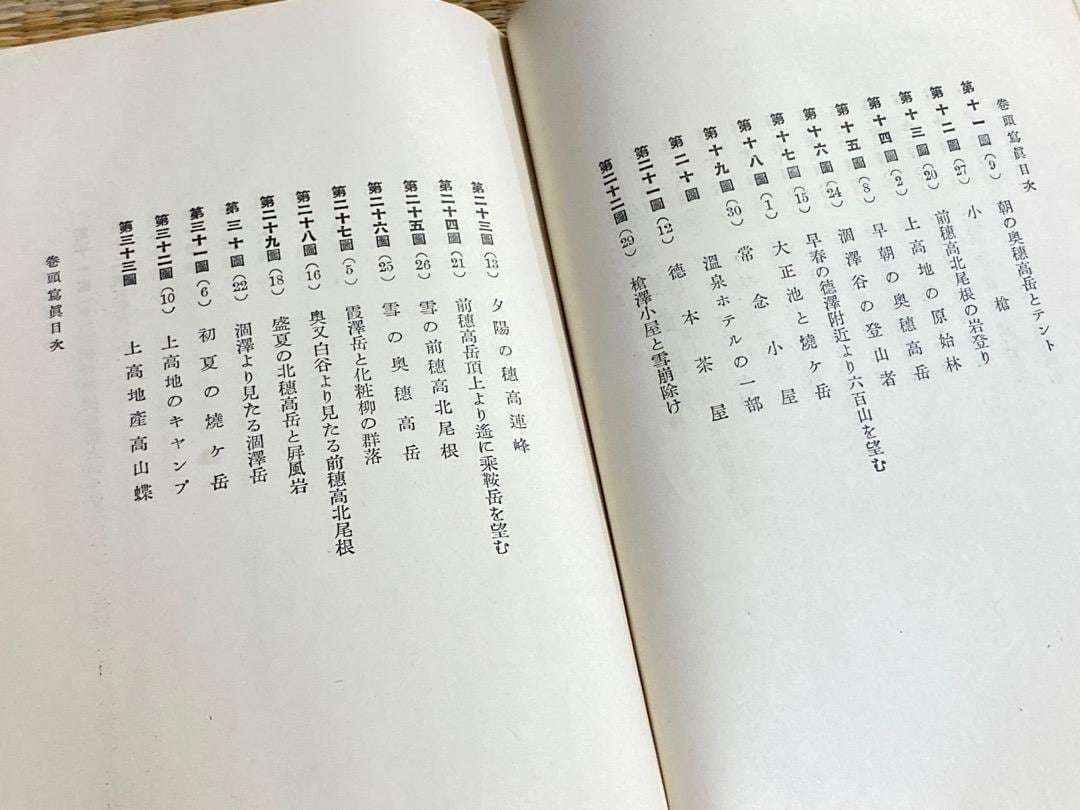 巻頭寫眞目次
第十一圖(9) 朝の奥穂高岳とテント
第十二圖(27) 小槍
第十三圖(20) 前穂高北尾根の岩登り
第十四圖(2) 上高地の原始林
第十五圖(8) 早朝の奥穂高岳
第十六圖(24) 涸澤谷の登山者
第十七圖(15) 早春の德澤附近より六百山を望む
第十八圖(1) 大正池と燒ヶ岳
第十九圖(30) 常念小屋
第二十圖 温泉ホテルの一部
第二十一圖(12) 德本茶屋
第二十二圖(29) 槍澤小屋と雪崩除け
第二十三圖(13) 夕陽の穂高連峰
第二十四圖(21) 前穂高岳頂上より遙に乘鞍岳を望む
第二十五圖(26) 雪の前穂高北尾根
第二十六圖(25) 雪の奥穂高岳
第二十七圖(5) 霞澤岳と化粧柳の群落
第二十八圖(16) 奥又白谷より見たる前穂高北尾根
第二十九圖(18) 盛夏の北穂高岳と屏風岩
第三十圖(22) 涸澤より見たる涸澤岳
第三十一圖(6) 初夏の燒ヶ岳
第三十二圖(10) 上高地のキャンプ
第三十三圖 上高地產高山蝶
巻頭寫眞目次